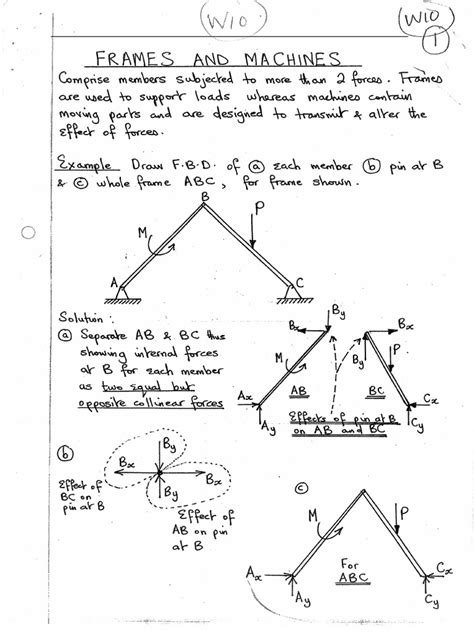 W10
(W10
1
FRAMES AND MACHINES
Comprise members subjected to more than 2 forces. Frames
are used to support loads whereas machines contain
moving parts and are designed to transmit & alter the
effect of forces.
Example Draw F.B.D. of (a) each member (b) pin at B
& (c) whole frame ABC, for frame shown.
B
P
M
A
C
Solution:
(a) Separate AB & BC thus
showing internal forces
at B for each member
as two equal but
opposite collinear forces
By
Bx
Bx
By
P
M
AB
BC
Ax
Ay
Cx
Cy
Effects of pin at B
on AB and BC
(b)
By
Bx
Bx
By
Effect of
BC on
pin at B
Effect of
AB on pin
at B
(c)
M
P
For
ABC
Ax
Ay
Cx
Cy